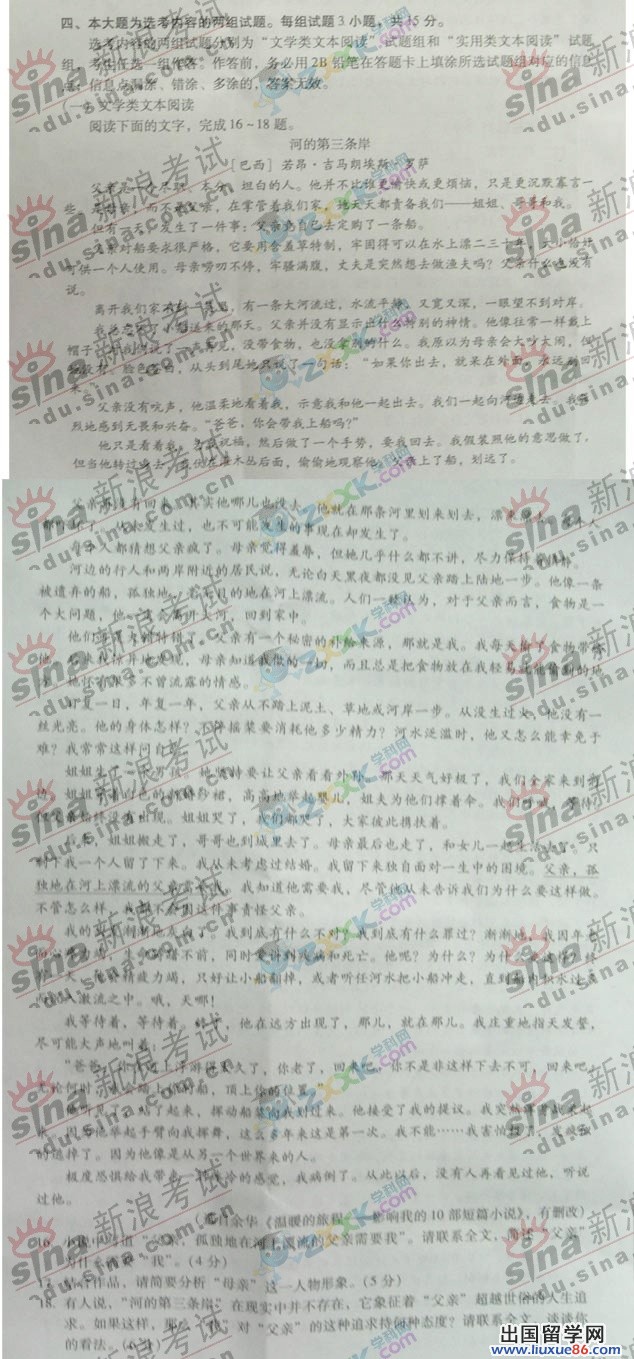 四、本大题为选考内容的两组试题。每组试题3小题，共15分。
选考内容的两组试题分别为“文学类文本阅读”试题组和“实用类文本阅读”试题
组，考生任选一组作答。作答前，务必用2B铅笔在答题卡上填涂所选试题组对应的信息
点；信息点漏涂、错涂、多涂的，答案无效。
(一) 文学类文本阅读
阅读下面的文字，完成16~18题。
河的第三条岸
[巴西] 若昂·吉马朗埃斯·罗萨
父亲是一个尽职、本分、坦白的人。他并不比谁更愉快或更烦恼，只是更沉默寡言一
些。是母亲，而不是父亲，在掌管着我们家，她天天都责备我们——姐姐、哥哥和我。
但有一天，发生了一件事：父亲竟自己去定购了一条船。
父亲对船要求很严格，它要用含羞草特制，牢固得可以在水上漂二三十年，大小恰好
可供一个人使用。母亲唠叨不停，牢骚满腹，丈夫是突然想去做渔夫吗？父亲什么也没有
说。
离开我们家不到一英里，有一条大河流过，水流平静，又宽又深，一眼望不到对岸。
小船送来的那天。父亲并没有显示出什么特别的神情。他像往常一样戴上
帽子，对我们说了一声再见，没带食物，也没拿别的什么。我原以为母亲会大吵大闹，但
她没有。脸色苍白，从头到尾她只说了一句话：“如果你出去，就呆在外面，永远别回
来。”
父亲没有吭声，他温柔地看着我，示意我和他一起出去。我们一起向河边走去。我强
烈地感到无畏和兴奋。“爸爸，你会带我上船吗？”
他只是看着我，为我祝福，然后做了一个手势，要我回去。我假装照他的意思做了，
但当他转过身去，我伏在灌木丛后面，偷偷地观察他。父亲上了船，划远了。
父亲再没有回来。其实他哪儿也没去。他就在那条河里划来划去，漂来漂去。每个人
都吓坏了。从未发生过，也不可能发生的事现在却发生了。
每个人都猜想父亲疯了。母亲觉得羞辱，但她几乎什么都不讲，尽力保持着镇静。
河边的行人和两岸附近的居民说，无论白天黑夜都没见父亲踏上陆地一步。他像一条
被遗弃的船，孤独地、毫无目的地在河上漂流。人们一致认为，对于父亲而言，食物是一
个大问题，他一定会离开大河，回到家中。
他们可是大错特错了。父亲有一个秘密的补给来源，那就是我。我每天偷了食物带给
他。后来我惊异地发现，母亲知道我做的一切，而且总是把食物放在我轻易就能偷到的地
方。她怀有很多不曾流露的情感。
日复一日，年复一年，父亲从不踏上泥土、草地或河岸一步。从没生过火，他没有一
丝光亮。他的身体怎样？不停摇桨要消耗他多少精力？河水泛滥时，他又怎么能幸免于
难？我常常这样问自己。
姐姐生了一个男孩。她坚持要让父亲看看外孙。那天天气好极了，我们全家来到河
边。姐姐穿着白色的新婚纱裙，高高地举起婴儿，姐夫为他们撑着伞。我们呼喊，等待。
但父亲始终没有出现。姐姐哭了，我们都哭了，大家彼此携扶着。
后来，姐姐搬走了，哥哥也到城里去了。母亲最后也走了，和女儿一起生活去了。只
剩下我一个人留了下来。我从未考虑过结婚。我留下来独自面对一生中的困境。父亲，孤
独地在河上漂流的父亲需要我。我知道他需要我，尽管他从未告诉我们为什么要这样做。
不管怎么样，我都不会因这件事责怪父亲。
我的头发渐渐地灰白了。我到底有什么不对？我到底有什么罪过？渐渐地，我因年
生命踌躇不前，同时爱讲到疾病和死亡。他呢？为什么？为什么要这样？终
有一天，他会精疲力竭，只好让小船翻掉，或者听任河水把小船冲走，直到船内积水过多
激流之中。哦，天哪！
我等待着，等待着。终于，他在远方出现了，那儿，就在那儿。我庄重地指天发誓，
尽可能大声地叫着：
“爸爸，你在河上浮游得太久了，你老了，回来吧，你不是非这样下去不可，回来吧，
无论何时，我会踏上你的船，顶上你的位置。”
他听见了，站了起来，挥动船桨向我划过来。他接受了我的提议。我突然浑身战栗起
来，因为他举起手臂向我挥舞，这么多年来这是第一次。我不能……我害怕极了，发疯似
的逃掉了。因为他像是从另一个世界来的人。
极度恐惧给我带来一种冰冷的感觉，我病倒了。从此以后，没有人再看见过他，听说
过他。
(选自余华《温暖的旅程——影响我的10部短篇小说》，有删改)
16. 小说中写道“父亲，孤独地在河上漂流的父亲需要我”。请联系全文，简述“父亲”
为什么需要“我”。(4分)
17. 结合作品，请简要分析“母亲”这一人物形象。(5分)
18. 有人说，“河的第三条岸”在现实中并不存在，它象征着“父亲”超越世俗的人生追
求。如果这样，那么“我”对“父亲”的这种追求持何种态度？请联系全文，谈谈你
的看法。(6分)
新浪考试
sina
edu.sina.com.cn
学科网
ZXXK.com
出国留学网
www.liuxue86.com